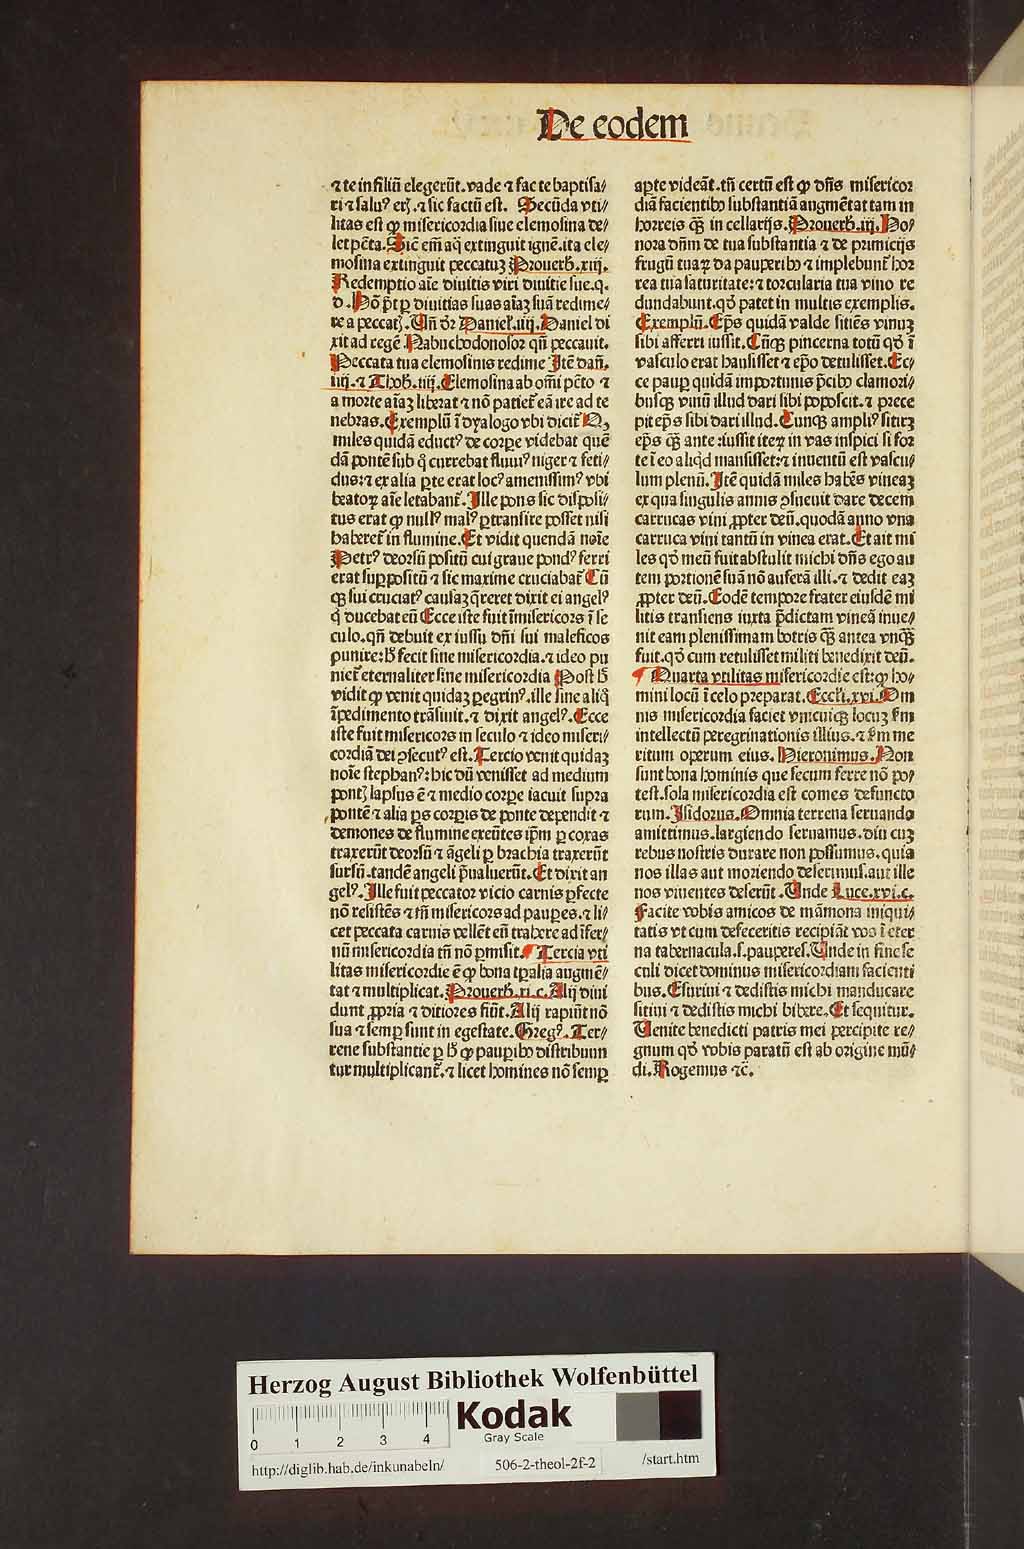 De eodem
⁊ te in filiũ elegerũt. vade ⁊ fac te baptisa⸗
ri ⁊ saluꝰ erꝭ. ⁊ sic factũ est. Secũda vti⸗
litas est ꝙ misericordia siue elemosina de⸗
let pctã. Sicẽ em̃ aq̃ extinguit ignẽ. ita ele⸗
mosina extinguit peccatuꝫ Prouerb̃. xiij.
Redemptio aĩe diuitis viri diuitie sue. q.
d. Nõ põt ꝑ diuitias suas aĩaꝫ suã redime⸗
re a peccatꝭ. Uñ dr̃ Daniel̃. iiij. Daniel di
xit ad regẽ Nabuchodonosor qñ peccauit.
Peccata tua elemosinis redime Jtẽ dañ.
iiij. ⁊ Thob̃. iiij. Elemosina ab om̃i pctõ ⁊
a morte aĩaꝫ liberat ⁊ nõ patiet̃ eã ire ad te
nebras. Exemplũ ĩ dyalogo vbi dicit̃ Q,
miles quidã eductꝰ de corpe videbat quẽ
dã pontẽ sub q̃ currebat fluuiꝰ niger ⁊ feti⸗
dus: ⁊ ex alia ꝑte erat locꝰ amenissimꝰ vbi
beatoꝝ aĩe letabant̃. Jlle pons sic disposi⸗
tus erat ꝙ nullꝰ malꝰ ꝑtransire posset nisi
haberet̃ in flumine. Et vidit quendã noĩe
Petrꝰ deorsũ positũ cui graue pondꝰ ferri
erat suꝑpositũ ⁊ sic maxime cruciabat̃ Cũ
qꝫ sui cruciatꝰ causaꝫ q̃reret dixit ei angelꝰ
q̃ ducebat eũ Ecce iste fuit ĩmisericors ĩ se
culo. qñ debuit ex iussu dñi sui maleficos
punire: ß fecit sine misericordia. ⁊ ideo pu
niet̃ eternaliter sine misericordia Post ß
vidit ꝙ venit quidaꝫ pegrinꝰ. ille sine aliq̃
ĩpedimento trãsiuit. ⁊ dixit angelꝰ. Ecce
iste fuit misericors in seculo ⁊ ideo miseri⸗
cordiã dei ↄsecutꝰ est. Tercio venit quidaꝫ
noĩe stephanꝰ: hic dũ venisset ad medium
pontꝭ lapsus ẽ ⁊ medio corpe iacuit supra
pontẽ ⁊ alia ꝑs corpis de ponte dependit ⁊
demones de flumine exeũtes ip̃m ꝑ coxas
traxerũt deorsũ ⁊ ãgeli ꝑ brachia traxerũt
sursũ. tandẽ angeli p̃ualuerũt. Et dixit an
gelꝰ. Jlle fuit peccator vicio carnis ꝑfecte
nõ resistẽs ⁊ tñ misericors ad paupes. ⁊ li⸗
cet peccata carnis vellẽt eũ trahere ad ĩfer⸗
nũ misericordia tñ nõ ꝑmisit. Tercia vti
litas misericordie ẽ ꝙ bona tꝑalia augmẽ⸗
tat ⁊ multiplicat. Prouerb̃. xi. c. Alij diui
dunt ꝓpria ⁊ ditiores fiũt. Alij rapiũt nõ
sua ⁊ semꝑ sunt in egestate. Gregꝰ. Ter⸗
rene substantie ꝑ ß ꝙ pauꝑibꝯ distribuun
tur multiplicant̃. ⁊ licet homines nõ semꝑ
aꝑte videãt. tñ certũ est ꝙ dñs misericor
diã facientibꝯ substantiã augmẽtat tam in
horreis qꝫ̃ in cellarijs. Prouerb̃. iij. Ho⸗
nora dñm de tua substantia ⁊ de primicijs
frugũ tuaꝝ da pauperibꝯ ⁊ implebunt̃ hor
rea tua saturitate: ⁊ torcularia tua vino re
dundabunt. qd̃ patet in multis exemplis.
Exemplũ. Ep̃s quidã valde sitiẽs vinuꝫ
sibi afferri iussit. Cũqꝫ pincerna totũ qd̃ ĩ
vasculo erat hausisset ⁊ ep̃o detulisset. Ec⸗
ce pauꝑ quidã importunis p̃cibꝯ clamori⸗
busqꝫ vinũ illud dari sibi poposcit. ⁊ prece
pit ep̃s sibi dari illud. Cunqꝫ ampliꝰ sitirꝫ
ep̃s qꝫ̃ ante: iussit iteꝝ in vas inspici si for
te ĩ eo aliqd mansisset: ⁊ inuentũ est vascu⸗
lum plenũ. Jtẽ quidã miles habẽs vineaꝫ
ex qua singulis annis ↄsueuit dare decem
carrucas vini ꝓpter deũ. quodã anno vna
carruca vini tantũ in vinea erat. Et ait mi
les qd̃ meũ fuit abstulit michi dñs ego au
tem portionẽ suã nõ auferã illi. ⁊ dedit eaꝫ
ꝓpter deũ. Eodẽ tempore frater eiusdẽ mi
litis transiens iuxta p̃dictam vineã inue⸗
nit eam plenissimam botris qꝫ̃ antea vnqꝫ̃
fuit. qd̃ cum retulisset militi benedixit deũ.
¶ Quarta vtilitas misericordie est: ꝙ ho⸗
mini locũ ĩ celo preparat. Eccl̃i. xvi. Om
nis misericordia faciet vnicuiqꝫ locuꝫ ẜm
intellectũ peregrinationis illius. ⁊ ẜm me
ritum operum eius. Hieronimus. Non
sunt bona hominis que secum ferre nõ po⸗
test. sola misericordia est comes defuncto
rum. Jsidorus. Omnia terrena seruando
amittimus. largiendo seruamus. diu cuꝫ
rebus nostris durare non possumus. quia
nos illas aut moriendo deserimus. aut ille
nos viuentes deserũt. Unde Luce. xvi. c.
Facite vobis amicos de mãmona iniqui⸗
tatis vt cum defeceritis recipiãt vos ĩ eter
na tabernacula. s. pauperes. Unde in fine se
culi dicet dominus misericordiam facienti
bus. Esuriui ⁊ dedistis michi manducare
sitiui ⁊ dedistis michi bibere. Et sequitur.
Uenite benedicti patris mei percipite re⸗
gnum qd̃ vobis paratũ est ab origine mũ⸗
di. Rogemus ⁊c̃.
Herzog August Bibliothek Wolfenbüttel
Kodak
Gray Scale
0 1 2 3 4
http://diglib.hab.de/inkunabeln/ 506-2-theol-2f-2 /start.htm